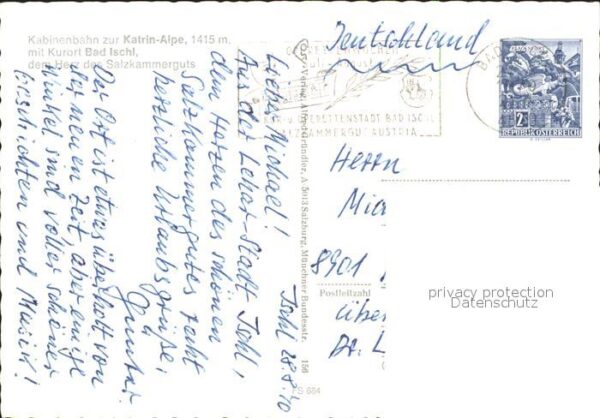 Kabinenbahn zur Katrin-Alpe, 1415 m,
mit Kurort Bad Ischl,
dem Herz des Salzkammerguts
Deutschland
Ischl 28.8.70
Lieber Michael!
Aus der Lehar-Stadt Ischl,
dem Herzen des schönen
Salzkammergutes recht
herzliche Urlaubsgrüße,
Gunter.
Der Ort ist etwas überholt von
der neuen Zeit, aber einige
Winkel sind voller schöner
Geschichten und Musik!
Verlag Alfred Gründler, A 5013 Salzburg, Münchner Bundesstr. 156
FS 664
BAD ISCHL
SALZKAMMERGUT AUSTRIA
BAD
2S
REPUBLIK ÖSTERREICH
Herrn
8901
Postleitzahl
über
privacy protection
Datenschutz